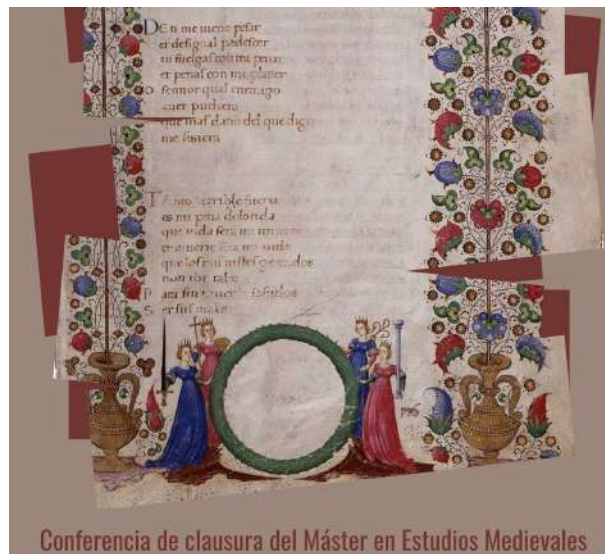 DE n me uiene pesar
et desigual padescer
tu fuelgas con mi penar
et penas con mi plazer
o sennor qual enemigo
auer pudiera
que mas dano del que digo
me fisiera
es mi pena dolorida
que uida sera mi muerte
et muerte sera mi uida
que los mis tristes
non
Conferencia de clausura del Máster en Estudios Medievales